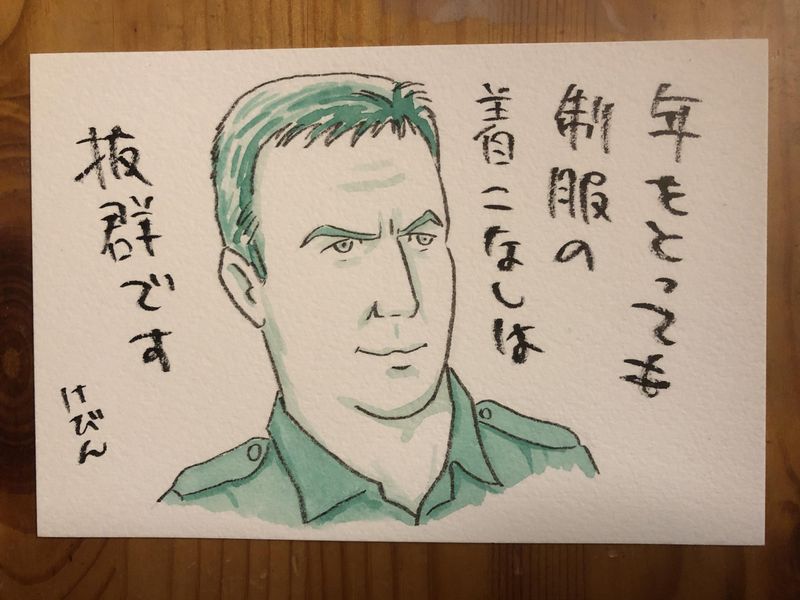 年をとっても
制服の
着こなしは
抜群です
けびん